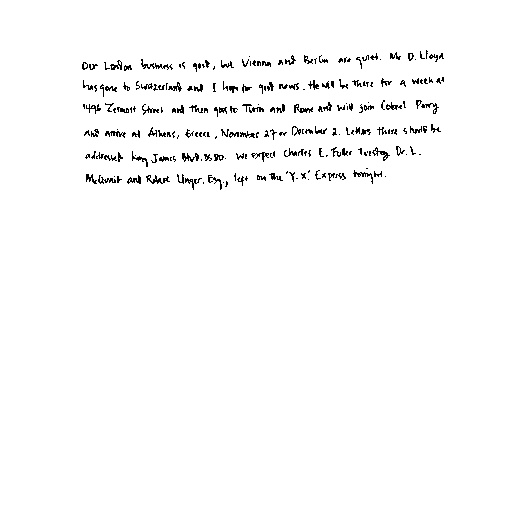 Our London business is good, but Vienna and Berlin are quiet. Mr D. Lloyd
has gone to Switzerland and I hope for good news. He will be there for a week at
1496 Zermott Street and then goes to Turin and Rome and will join Colonel Parry
and arrive at Athens, Greece, November 27 or December 2. Letters there should be
addressed: King James Blvd. 3580. We expect Charles E. Fuller Tuesday. Dr. L.
McQuaid and Robert Unger, Esq., left on the 'Y.X.' Express tonight.